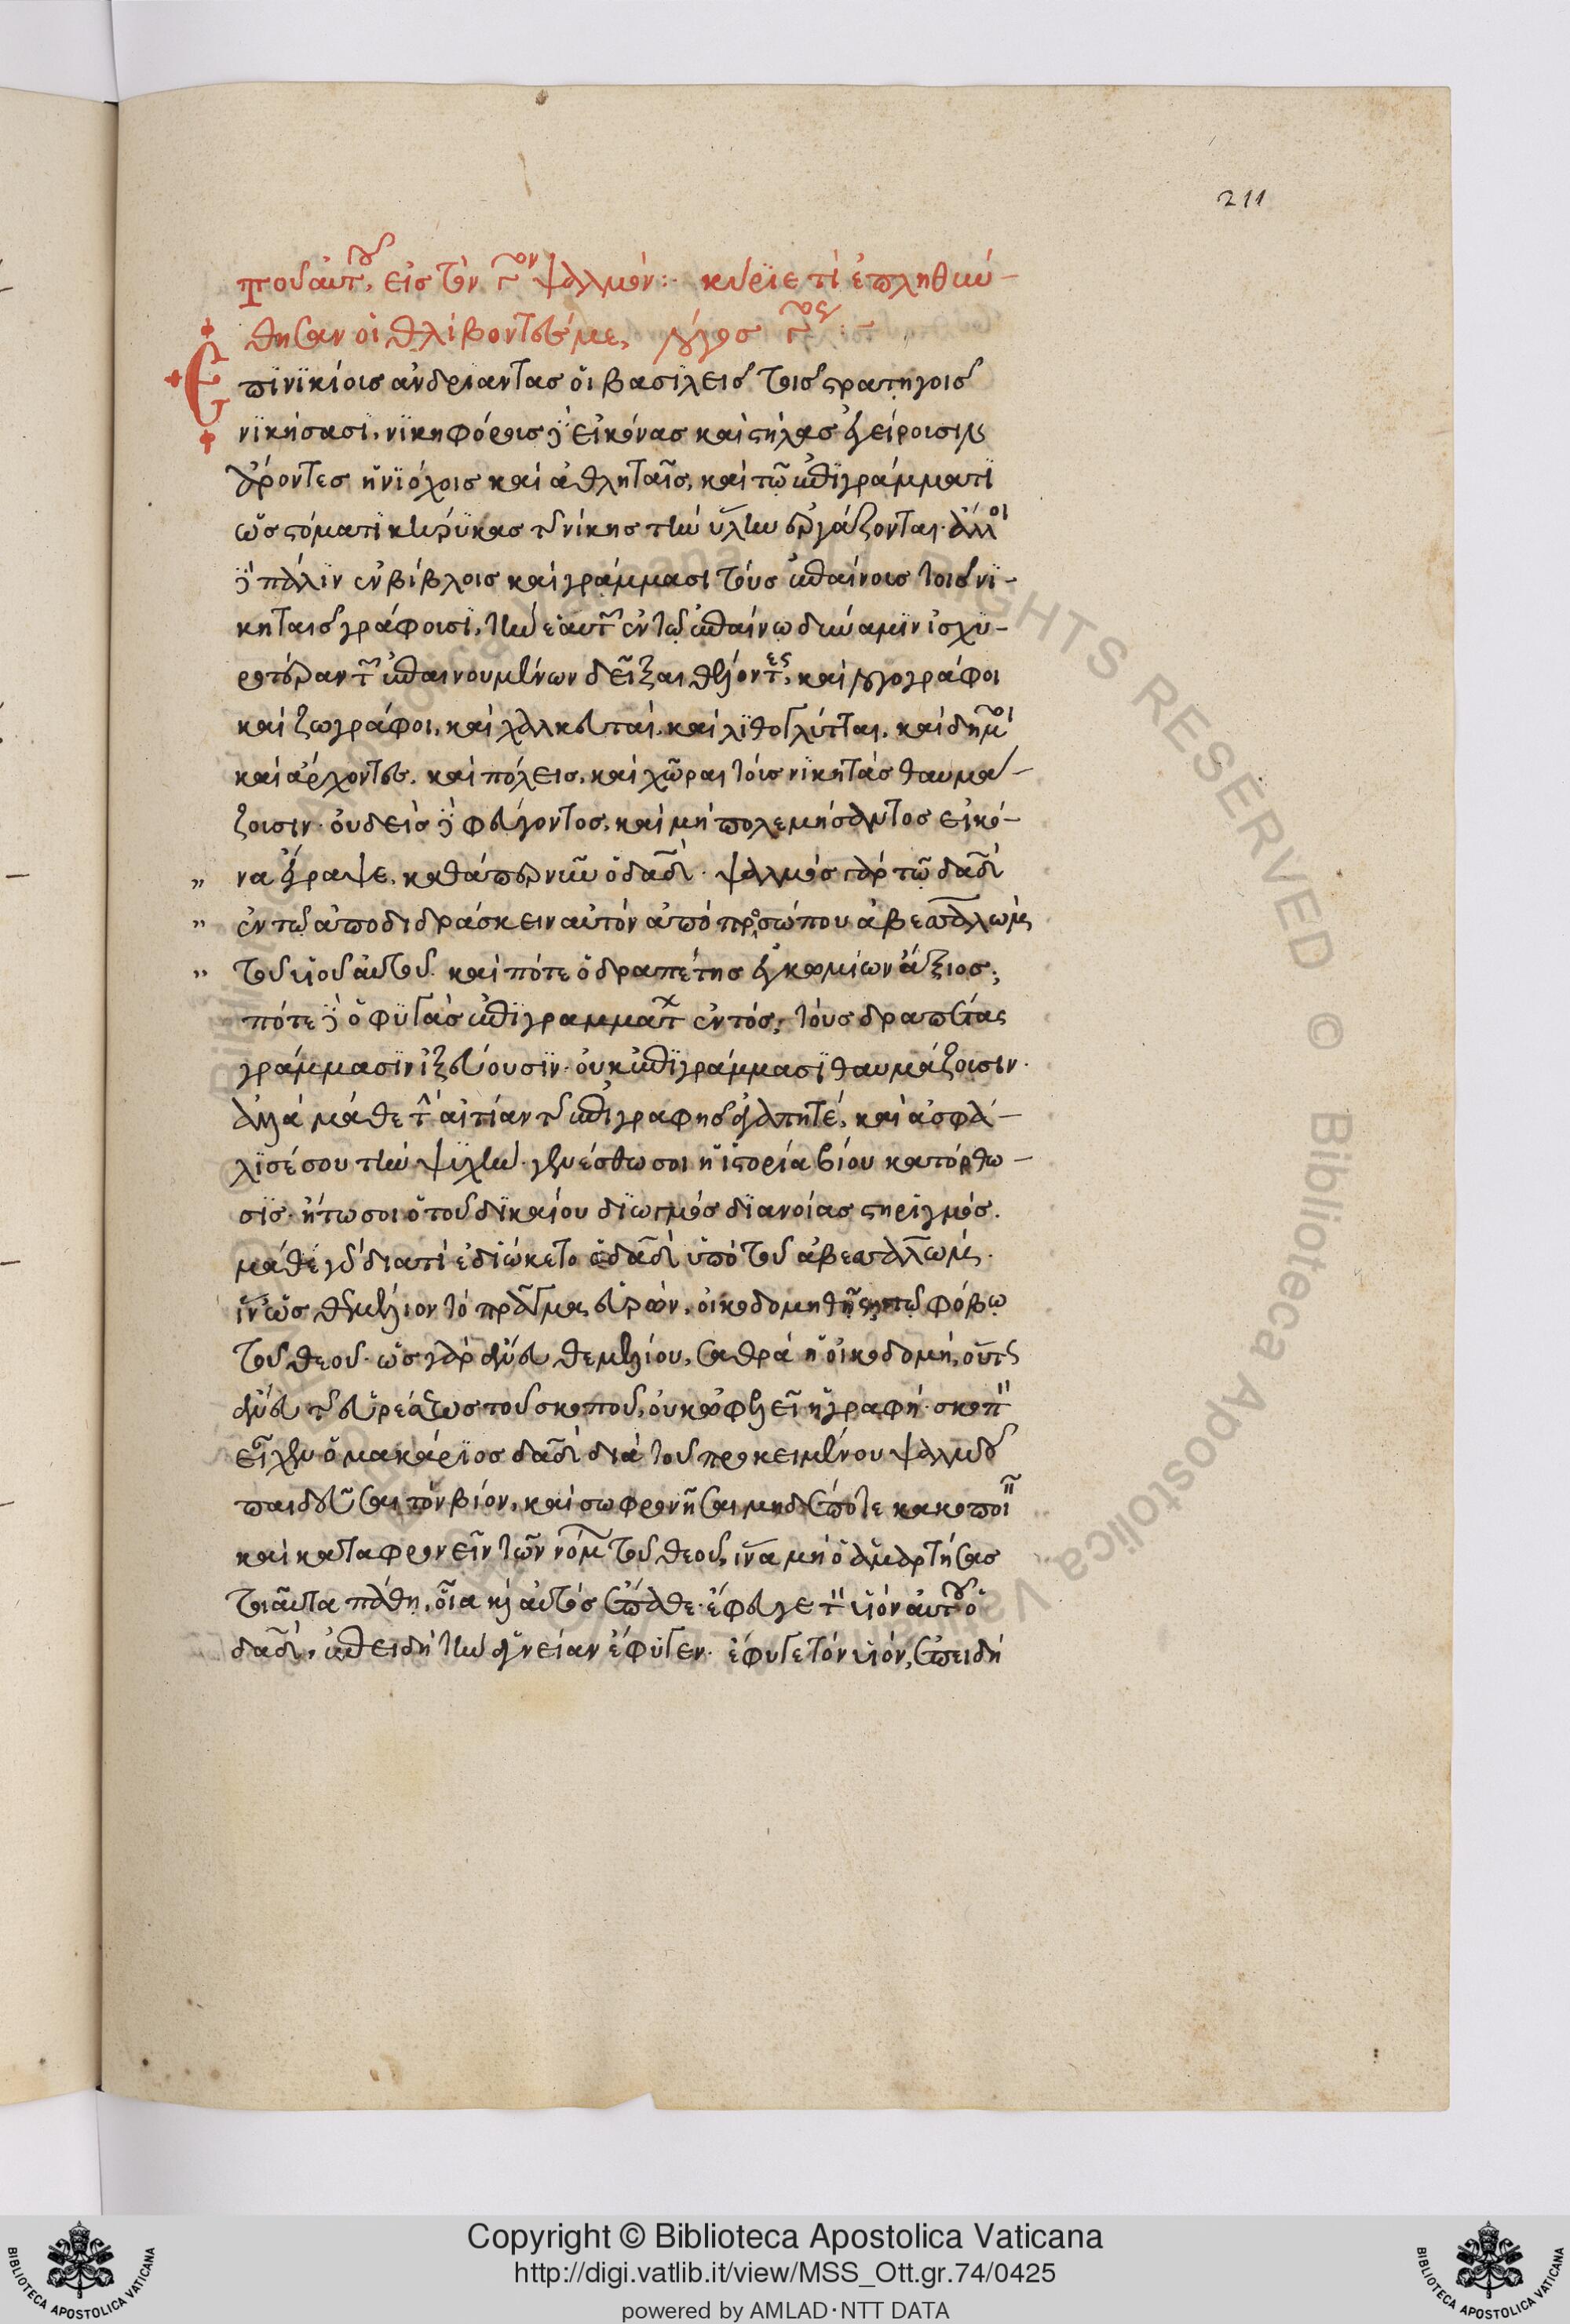 211
Τοῦ αὐτοῦ, εἰς τὸν γον ψαλμόν:· κύριε τί ἐπληθύν-
θησαν οἱ θλίβοντές με, λόγος γος :-
Ἐπινικίοις ἀνδριάντας οἱ βασιλεῖς τοῖς στρατηγοῖς
νικήσασι, νικηφόροις δὲ εἰκόνας καὶ στήλας ἐγείρουσιν
ἄρχοντες ἡνιόχοις καὶ ἀθληταῖς, καὶ τῶ ἐπιγράμματι
ὡς στόματι κήρυκας τῆς νίκης τὴν ὕλην ἐργάζονται. ἄλλοι
δὲ πάλιν ἐν βίβλοις καὶ γράμμασι τοὺς ἐπαίνους τοῖς νι-
κηταῖς γράφουσι, τὴν ἑαυτῶν ἐν τῷ ἐπαίνῳ δύναμιν ἰσχυ-
ροτέραν τῶν ἐπαινουμένων δεῖξαι θέλοντες, καὶ λογογράφοι
καὶ ζωγράφοι, καὶ χαλκευταί, καὶ λιθογλύπται, καὶ δῆμοι
καὶ ἄρχοντες, καὶ πόλεις, καὶ χῶραι τοὺς νικητὰς θαυμά-
ζουσιν· οὐδεὶς δὲ φεύγοντος, καὶ μὴ πολεμήσαντος εἰκό-
να ἔγραψε, καθάπερ νῦν ὁ δαδὶ· ψαλμὸς γὰρ τῶ δαδὶ
ἐν τῷ ἀποδιδράσκειν αὐτὸν ἀπὸ προσώπου ἀβεσσαλώμ
τοῦ υἱοῦ αὐτοῦ. καὶ πότε ὁ δραπέτης ἐγκωμίων ἄξιος;
πότε δὲ ὁ φυγὰς ἐπιγραμμάτων ἐντός; τοὺς δραπέτας
γράμμασιν ἐξ οὐκ ἐπιγράμμασι θαυμάζουσιν·
ἀλλὰ μάθε τὴν αἰτίαν τῆς ἐπιγραφῆς ἀγαπητέ, καὶ ἀσφά-
λισέ σου τὴν ψυχήν· γενέσθω σοι ἡ ἱστορία βίου κατόρθω-
σις· ἤτω σοι ὁ τοῦ δικαίου διωγμὸς διανοίας στηριγμός.
μάθε γὰρ διατί ἐδιώκετο ὁ δαδὶ ὑπὸ τοῦ ἀβεσσαλώμ.
ἵν' ὡς θεμέλιον τὸ πρᾶγμα εὑρών, οἰκοδομηθῇς ἐν τῷ φόβῳ
τοῦ θεοῦ· ὡς γὰρ ἄνευ θεμελίου, σαθρὰ ἡ οἰκοδομή, οὕτως
ἄνευ τῆς εὑρέσεως τοῦ σκοποῦ, οὐκ ὠφελεῖ ἡ γραφή· σκοπὸν
εἶχεν ὁ μακάριος δαδὶ διὰ τοῦ προκειμένου ψαλμοῦ
παιδεῦσαι τὸν βίον, καὶ σωφρονῆσαι μηδέποτε κακοποιεῖν
καὶ καταφρονεῖν τῶν νόμων τοῦ θεοῦ, ἵνα μὴ ὁ ἁμαρτήσας
τοιαῦτα πάθῃ, οἷα καὶ αὐτὸς ἔπαθε· ἔφευγε τὸν υἱὸν αὐτοῦ ὁ
δαδὶ, ἐπειδὴ τὴν ἁγνείαν ἔφυγεν· ἔφυγε τὸν υἱόν, ἐπειδὴ
RIGHTS RESERVED © Biblioteca Apostolica Vaticana
Copyright © Biblioteca Apostolica Vaticana
http://digi.vatlib.it/view/MSS_Ott.gr.74/0425
powered by AMLAD·NTT DATA
BIBLIOTECA APOSTOLICA VATICANA
BIBLIOTECA APOSTOLICA VATICANA